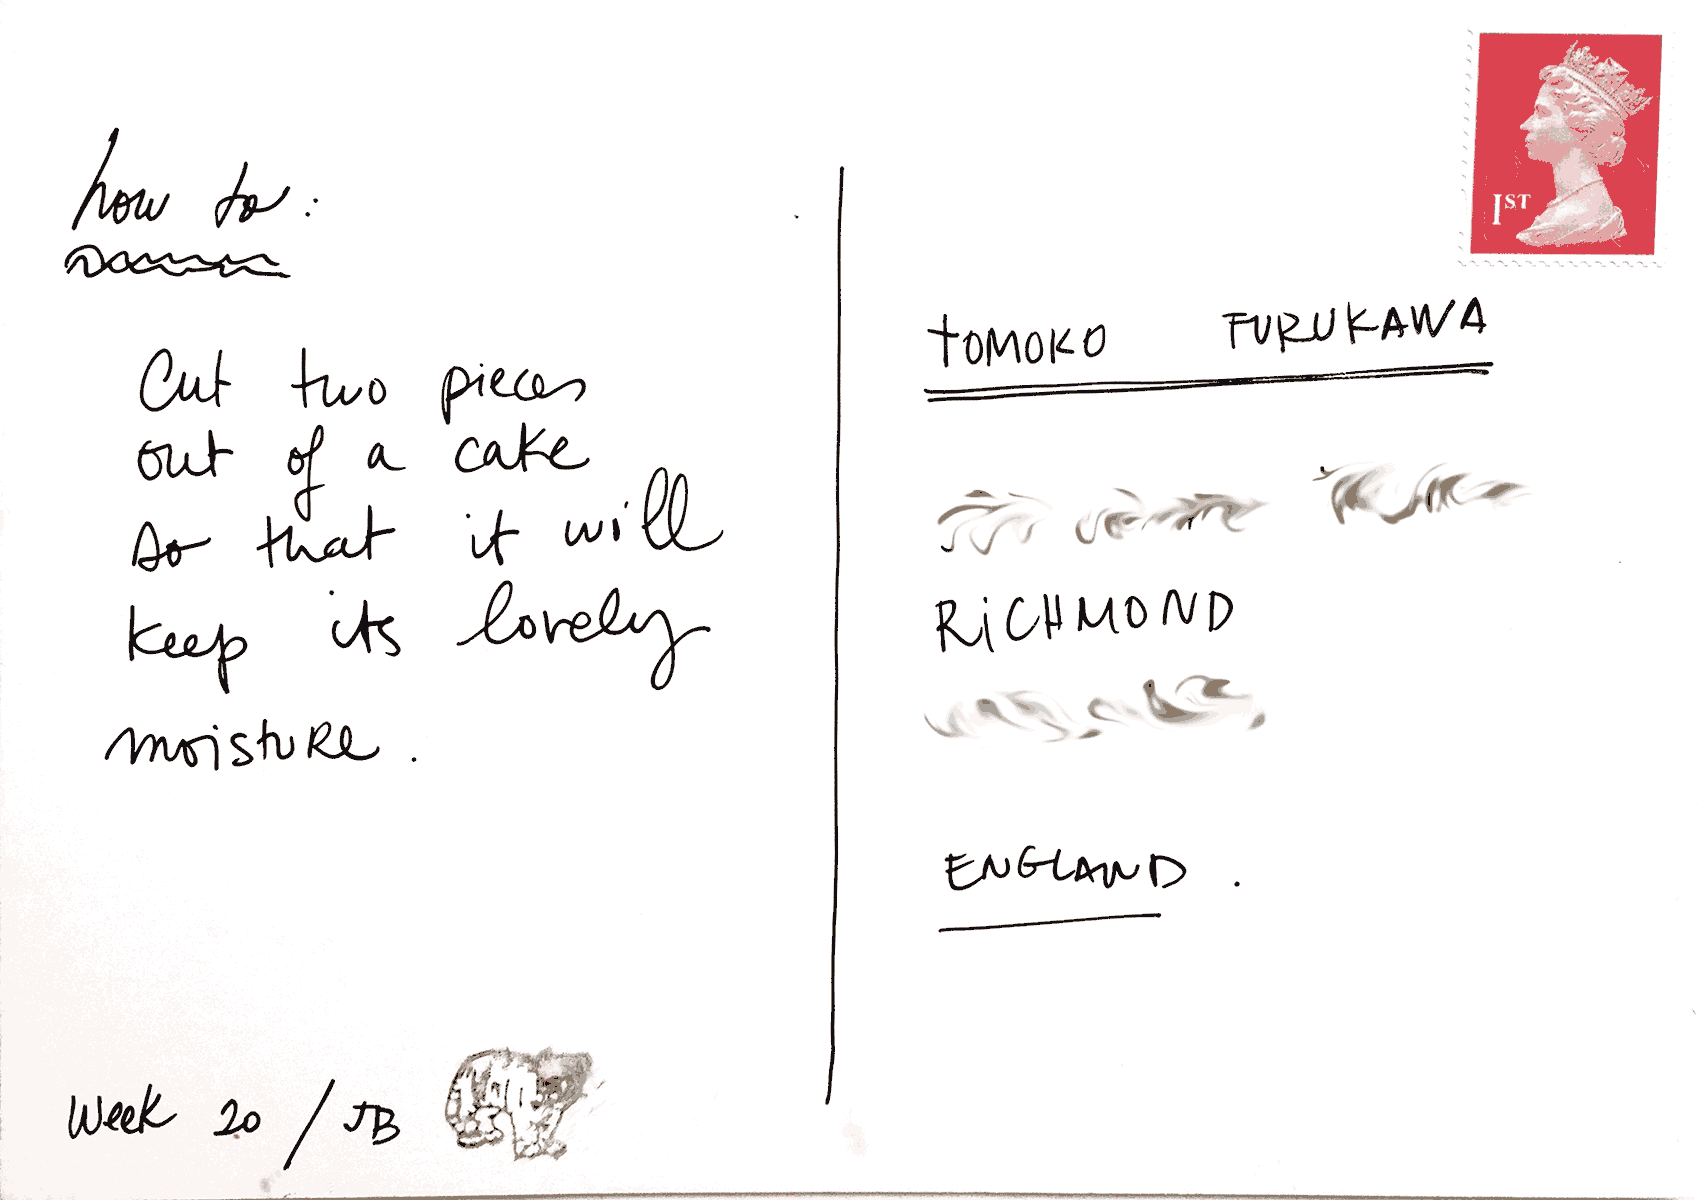 how to:
Cut two pieces
out of a cake
so that it will
keep its lovely
moisture.
Week 20 / JB
1ST
TOMOKO FURUKAWA
RiCHMOND
ENGLAND.